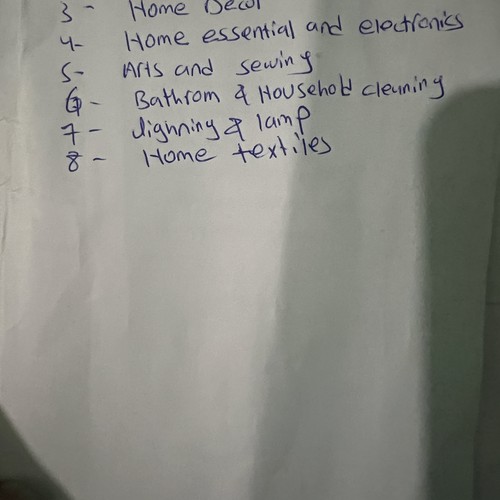 3 - Home Decor
4- Home essential and electronics
5- Arts and sewing
6 - Bathrom & Household cleaning
7 - lighning & lamp
8 - Home textiles